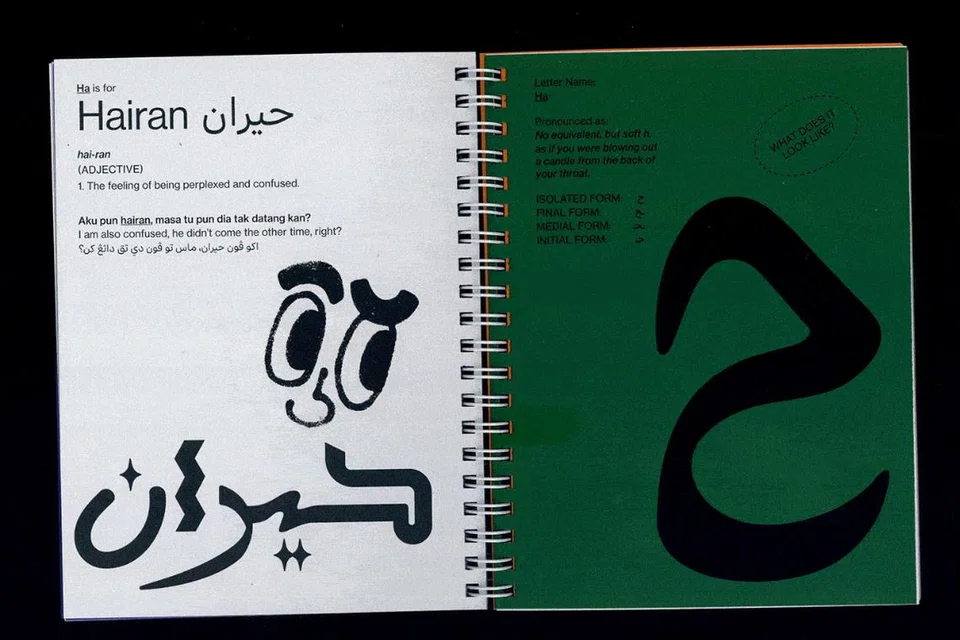 Ha is for
Hairan حيران
hai-ran
(ADJECTIVE)
1. The feeling of being perplexed and confused.
Aku pun hairan, masa tu pun dia tak datang kan?
I am also confused, he didn't come the other time, right?
اكو ڤون حيران، ماس تو ڤون دي تق داتڠ كن؟
حيران
Letter Name:
Ha
Pronounced as:
No equivalent, but soft h,
as if you were blowing out
a candle from the back of
your throat.
ISOLATED FORM: ح
FINAL FORM: ـح
MEDIAL FORM: ـحـ
INITIAL FORM: حـ
WHAT DOES IT
LOOK LIKE?
ح